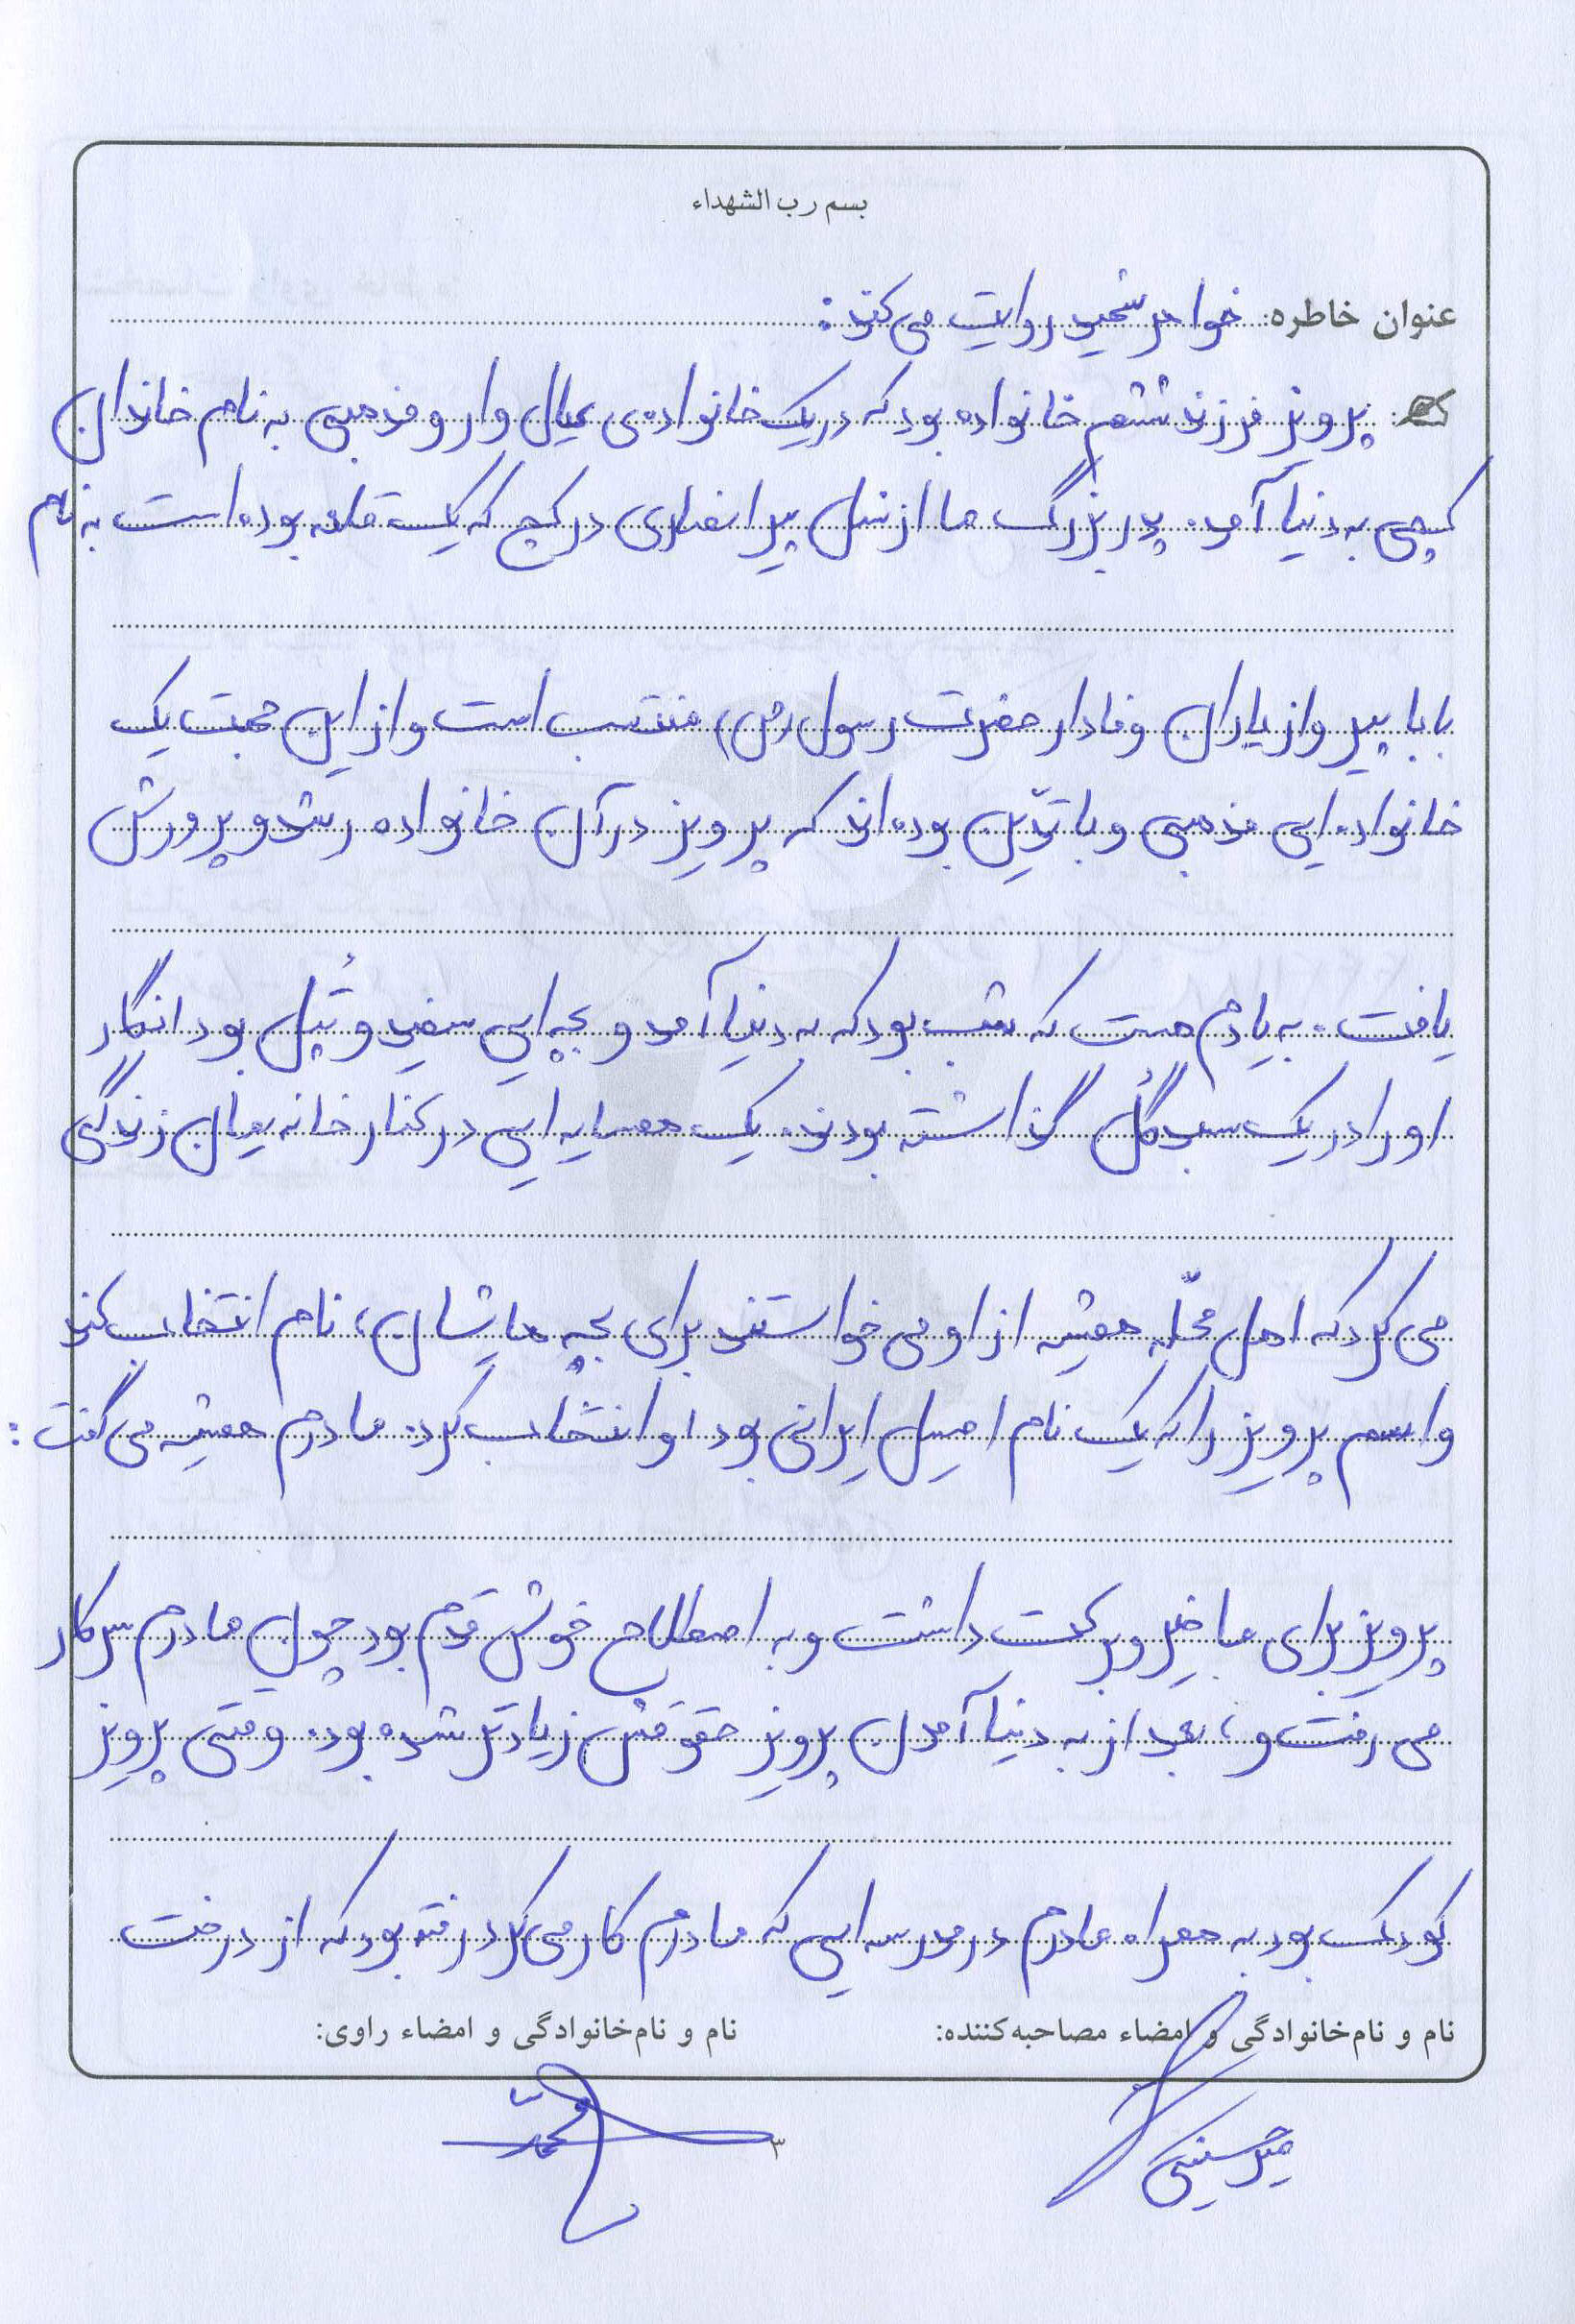 بسم رب الشهداء
عنوان خاطره: خواهر شهید روایت می‌کند:
پرویز فرزند ششم خانواده بود که در یک خانواده‌ی عیال وار و مذهبی به نام خاندان
کجی به دنیا آمد. پدر بزرگ ما از نسل پیر انصاری در کرج که یک قلعه بوده است به نام
بابا پیر و از یاران وفادار حضرت رسول (ص) منتسب است و از این جهت یک
خانواده‌ایی مذهبی و با تدیّن بوده‌اند که پرویز در آن خانواده رشد و پرورش
یافت. به یادم هست که شب بود که به دنیا آمد و بچه‌ایی سفید و تُپل بود انگار
او را در یک سبد گُل گذاشته بودند. یک همسایه‌ایی در کنار خانه یمان زندگی
می‌کرد که اهل محلّه همیشه از او می‌خواستند برای بچه هایشان، نام انتخاب کند
و اسم پرویز را که یک نام اصیل ایرانی بود او انتخاب کرد. مادرم همیشه می‌گفت:
پرویز برای ما خیر و برکت داشت و به اصطلاح خوش قدم بود چون مادرم سر کار
می رفت و، بعد از به دنیا آمدن پرویز حقوقش زیادتر شده بود. وقتی پرویز
کودک بود به همراه مادرم در مدرسه‌ایی که مادرم کار می‌کرد رفته بود که از درخت
نام و نام‌خانوادگی و امضاء مصاحبه‌کننده:
نام و نام‌خانوادگی و امضاء راوی:
میرحسینی
۳